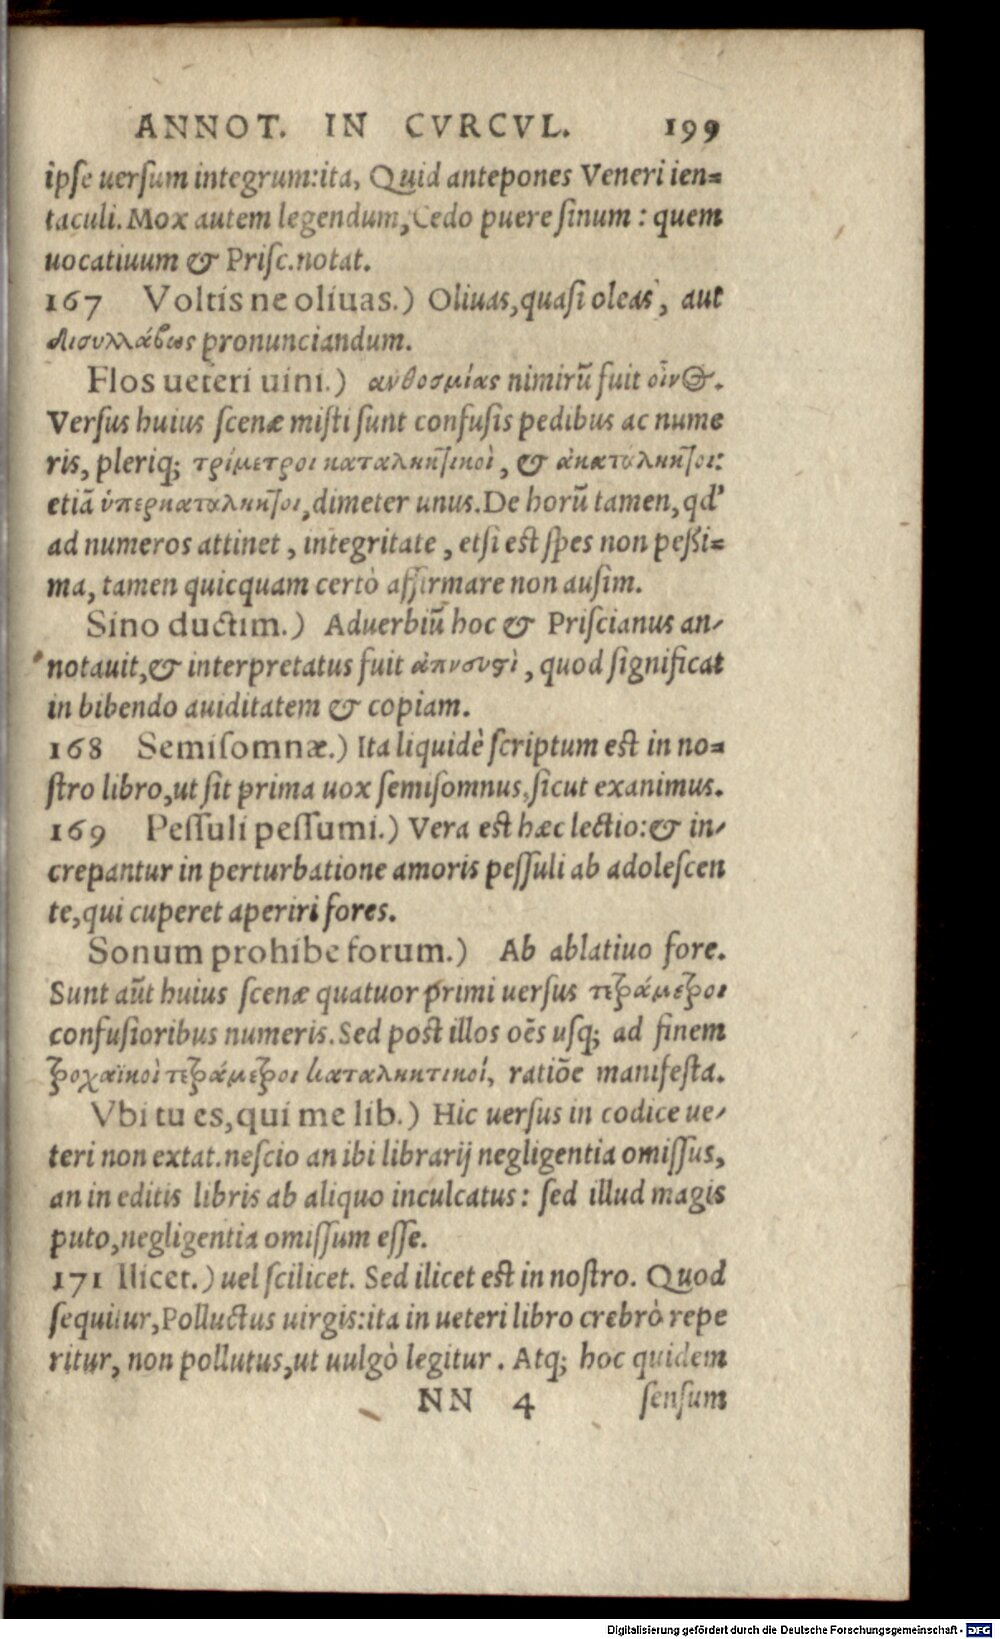 ANNOT. IN CVRCVL. 199
ipſe uerſum integrum:ita, Quid antepones Veneri ien=
taculi. Mox autem legendum, Cedo puere ſinum : quem
uocatiuum & Priſc. notat.
167 Voltis ne oliuas.) Oliuas, quaſi oleas, aut
δισυλλάβως pronunciandum.
Flos ueteri uini.) ανθοσμίας nimirũ fuit οἶνος.
Verſus huius ſcenæ miſti ſunt confuſis pedibus ac nume
ris, pleriq; τρίμετροι καταληκτικοὶ, & ἀκατάληκτοι:
etiã ὑπερκατάληκτοι, dimeter unus. De horũ tamen, qd'
ad numeros attinet, integritate, etſi eſt ſpes non peßi=
ma, tamen quicquam certò affirmare non auſim.
Sino ductim.) Aduerbiũ hoc & Priſcianus an-
notauit, & interpretatus fuit ἀπνουστὶ, quod ſignificat
in bibendo auiditatem & copiam.
168 Semiſomnæ.) Ita liquidè ſcriptum eſt in no=
ſtro libro, ut ſit prima uox ſemiſomnus, ſicut exanimus.
169 Peſſuli peſſumi.) Vera eſt hæc lectio: & in-
crepantur in perturbatione amoris peſſuli ab adoleſcen
te, qui cuperet aperiri fores.
Sonum prohibe forum.) Ab ablatiuo fore.
Sunt aũt huius ſcenæ quatuor primi uerſus τετράμετροι
confuſioribus numeris. Sed poſt illos oẽs uſq; ad finem
τροχαϊκοὶ τετράμετροι καταληκτικοί, ratiõe manifeſta.
Vbi tu es, qui me lib.) Hic uerſus in codice ue-
teri non extat. neſcio an ibi librarij negligentia omiſſus,
an in editis libris ab aliquo inculcatus: ſed illud magis
puto, negligentia omiſſum eſſe.
171 Ilicet.) uel ſcilicet. Sed ilicet eſt in noſtro. Quod
ſequitur, Polluctus uirgis: ita in ueteri libro crebrò repe
ritur, non pollutus, ut uulgò legitur. Atq; hoc quidem
NN 4 ſenſum
Digitalisierung gefördert durch die Deutsche Forschungsgemeinschaft - DFG